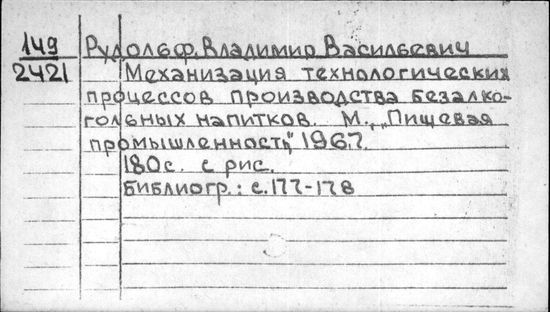 149 Рудольф, Владимир Васильевич
2421 Механизация технологических
процессов производства безалко-
гольных напитков. М., "Пищевая
промышленность", 1967.
180с. с рис.
Библиогр.: с.177-178